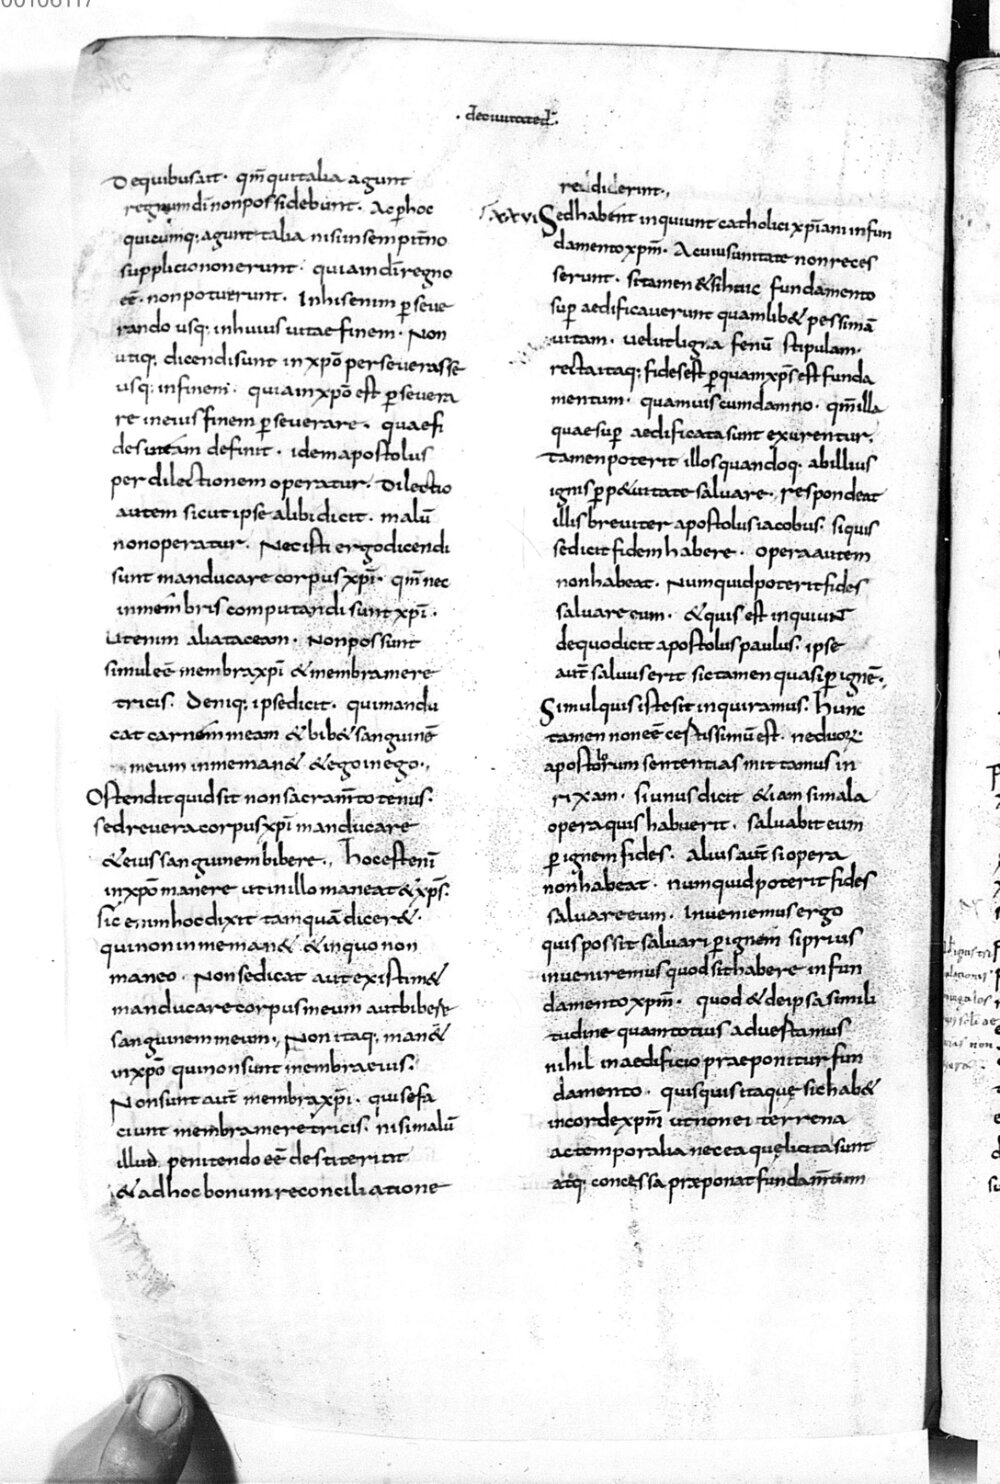 00106117
· deciuitatedī ·
Dequibusait · qm̄ quitalia agunt
regnumdī nonpossidebunt · Acp̱hoc
quicumq; agunt talia nisiinsempit̄no
supplicionon erunt · quiaindī regno
eē · nonpotuerunt · Inhisenim p̱seue
rando usq; inhuius uitae finem · Non
utiq; dicendisunt inxp̄o perseuerasse
usq; infinem · quiainxp̄o est p̱seuera
re ineiusfinem p̱seuerare · quaefi
desuteam definit · idemapostolus
per dilectionem operatur · Dilectio
autem sicutipse alibidicit · malū
nonoperatur · Necisti ergodicendi
sunt manducare corpusxp̄i · qm̄ nec
inmembris computandi sunt xp̄i ·
Utenim aliataceam · Nonpossunt
simuleē membraxp̄i &membramere
tricis · Deniq; ipsedicit · quimandu
cat carnem meam &bib& sanguinē
meum inmeman& &egoinego ·,
Ostenditquidsit nonsacram̄totenus ·
sedreueracorpusxp̄i manducare
&eiussanguinembibere ·, hocestenī
inxp̄o manere utinillo maneat&xp̄s ·
Sic enimhocdixit tamquā dicer& ·
quinoninmeman& &inquonon
maneo · Nonsedicat autexistim&
manducarecorpusmeum autbibere
sanguinemmeum ·, Non itaq; man&
inxp̄o quinonsunt membraeius ·
Nonsuntaut̄ membraxp̄i · quisefa
ciunt membrameretricis · nisimalū
illud penitendo eē destiterint
&adhocbonumreconciliatione
redidierint ·,
xxvi Sedhabent inquiunt catholicixp̄iani infun
damentoxp̄m · Acuiusunitate nonreces
serunt · sitamen&sihuic fundamento
sup̱ aedificauerunt quamlib& pessimā
uitam · uelutligna fenū stipulam ·
rectaitaq; fidesest p̱quamxp̄s est funda
mentum · quamuiscumdamno · qm̄ illa
quaesup̱ aedificatasunt exurentur ·
Tamenpoterit illosquandoq; abillius
ignisp̱p&uitate saluare · respondeat
illisbreuiter apostolusiacobus · siquis
sedicit fidemhabere · operaautem
nonhabeat · Numquidpoteritfides
saluare eum · &quis est inquiunt
dequodicit apostoluspaulus · ipse
aut̄ saluuserit sictamenquasip̱ignē ·,
Simulquisistesit inquiramus · hunc
tamen noneē certissimū est · neduorum
apostolorum sententias mittamus in
rixam · siunusdicit &iam simala
opera quis habuerit · saluabit eum
p̱ignem fides · aliusaut̄ siopera
nonhabeat · numquidpoterit fides
saluare eum · Inueniemusergo
quispossit saluari p̱ignem siprius
inueniremus quodsithabere infun
damentoxp̄m · quod&deipsa simili
tudine quamtotius aduertamus
nihil inaedificio praeponitur fun
damento · quisquisitaque sichab&
incordexp̄m utnonei terrena
actemporalia necea quęlicitasunt
atq; concessa pręponatfundam̄tum